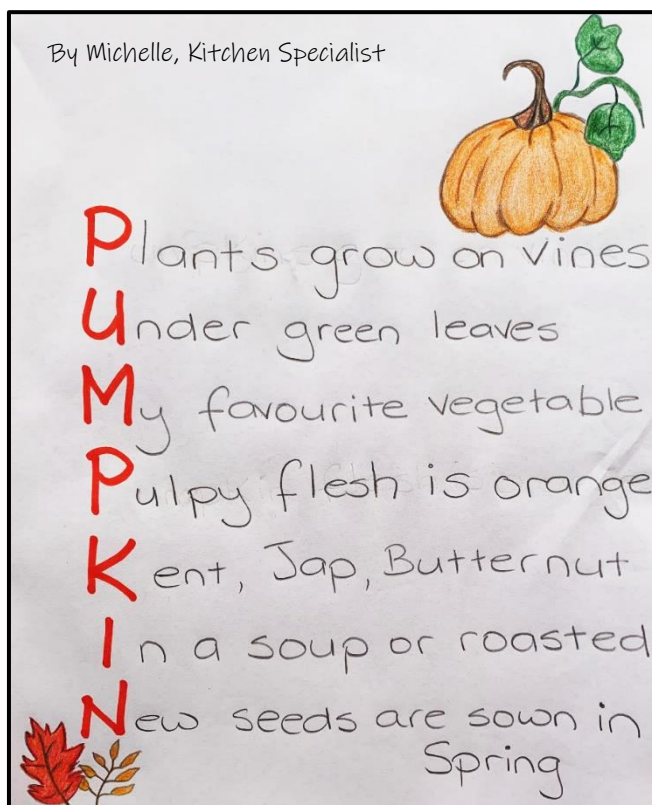 By Michelle, Kitchen Specialist
Plants grow on vines
Under green leaves
My favourite vegetable
Pulpy flesh is orange
Kent, Jap, Butternut
In a soup or roasted
New seeds are sown in
Spring